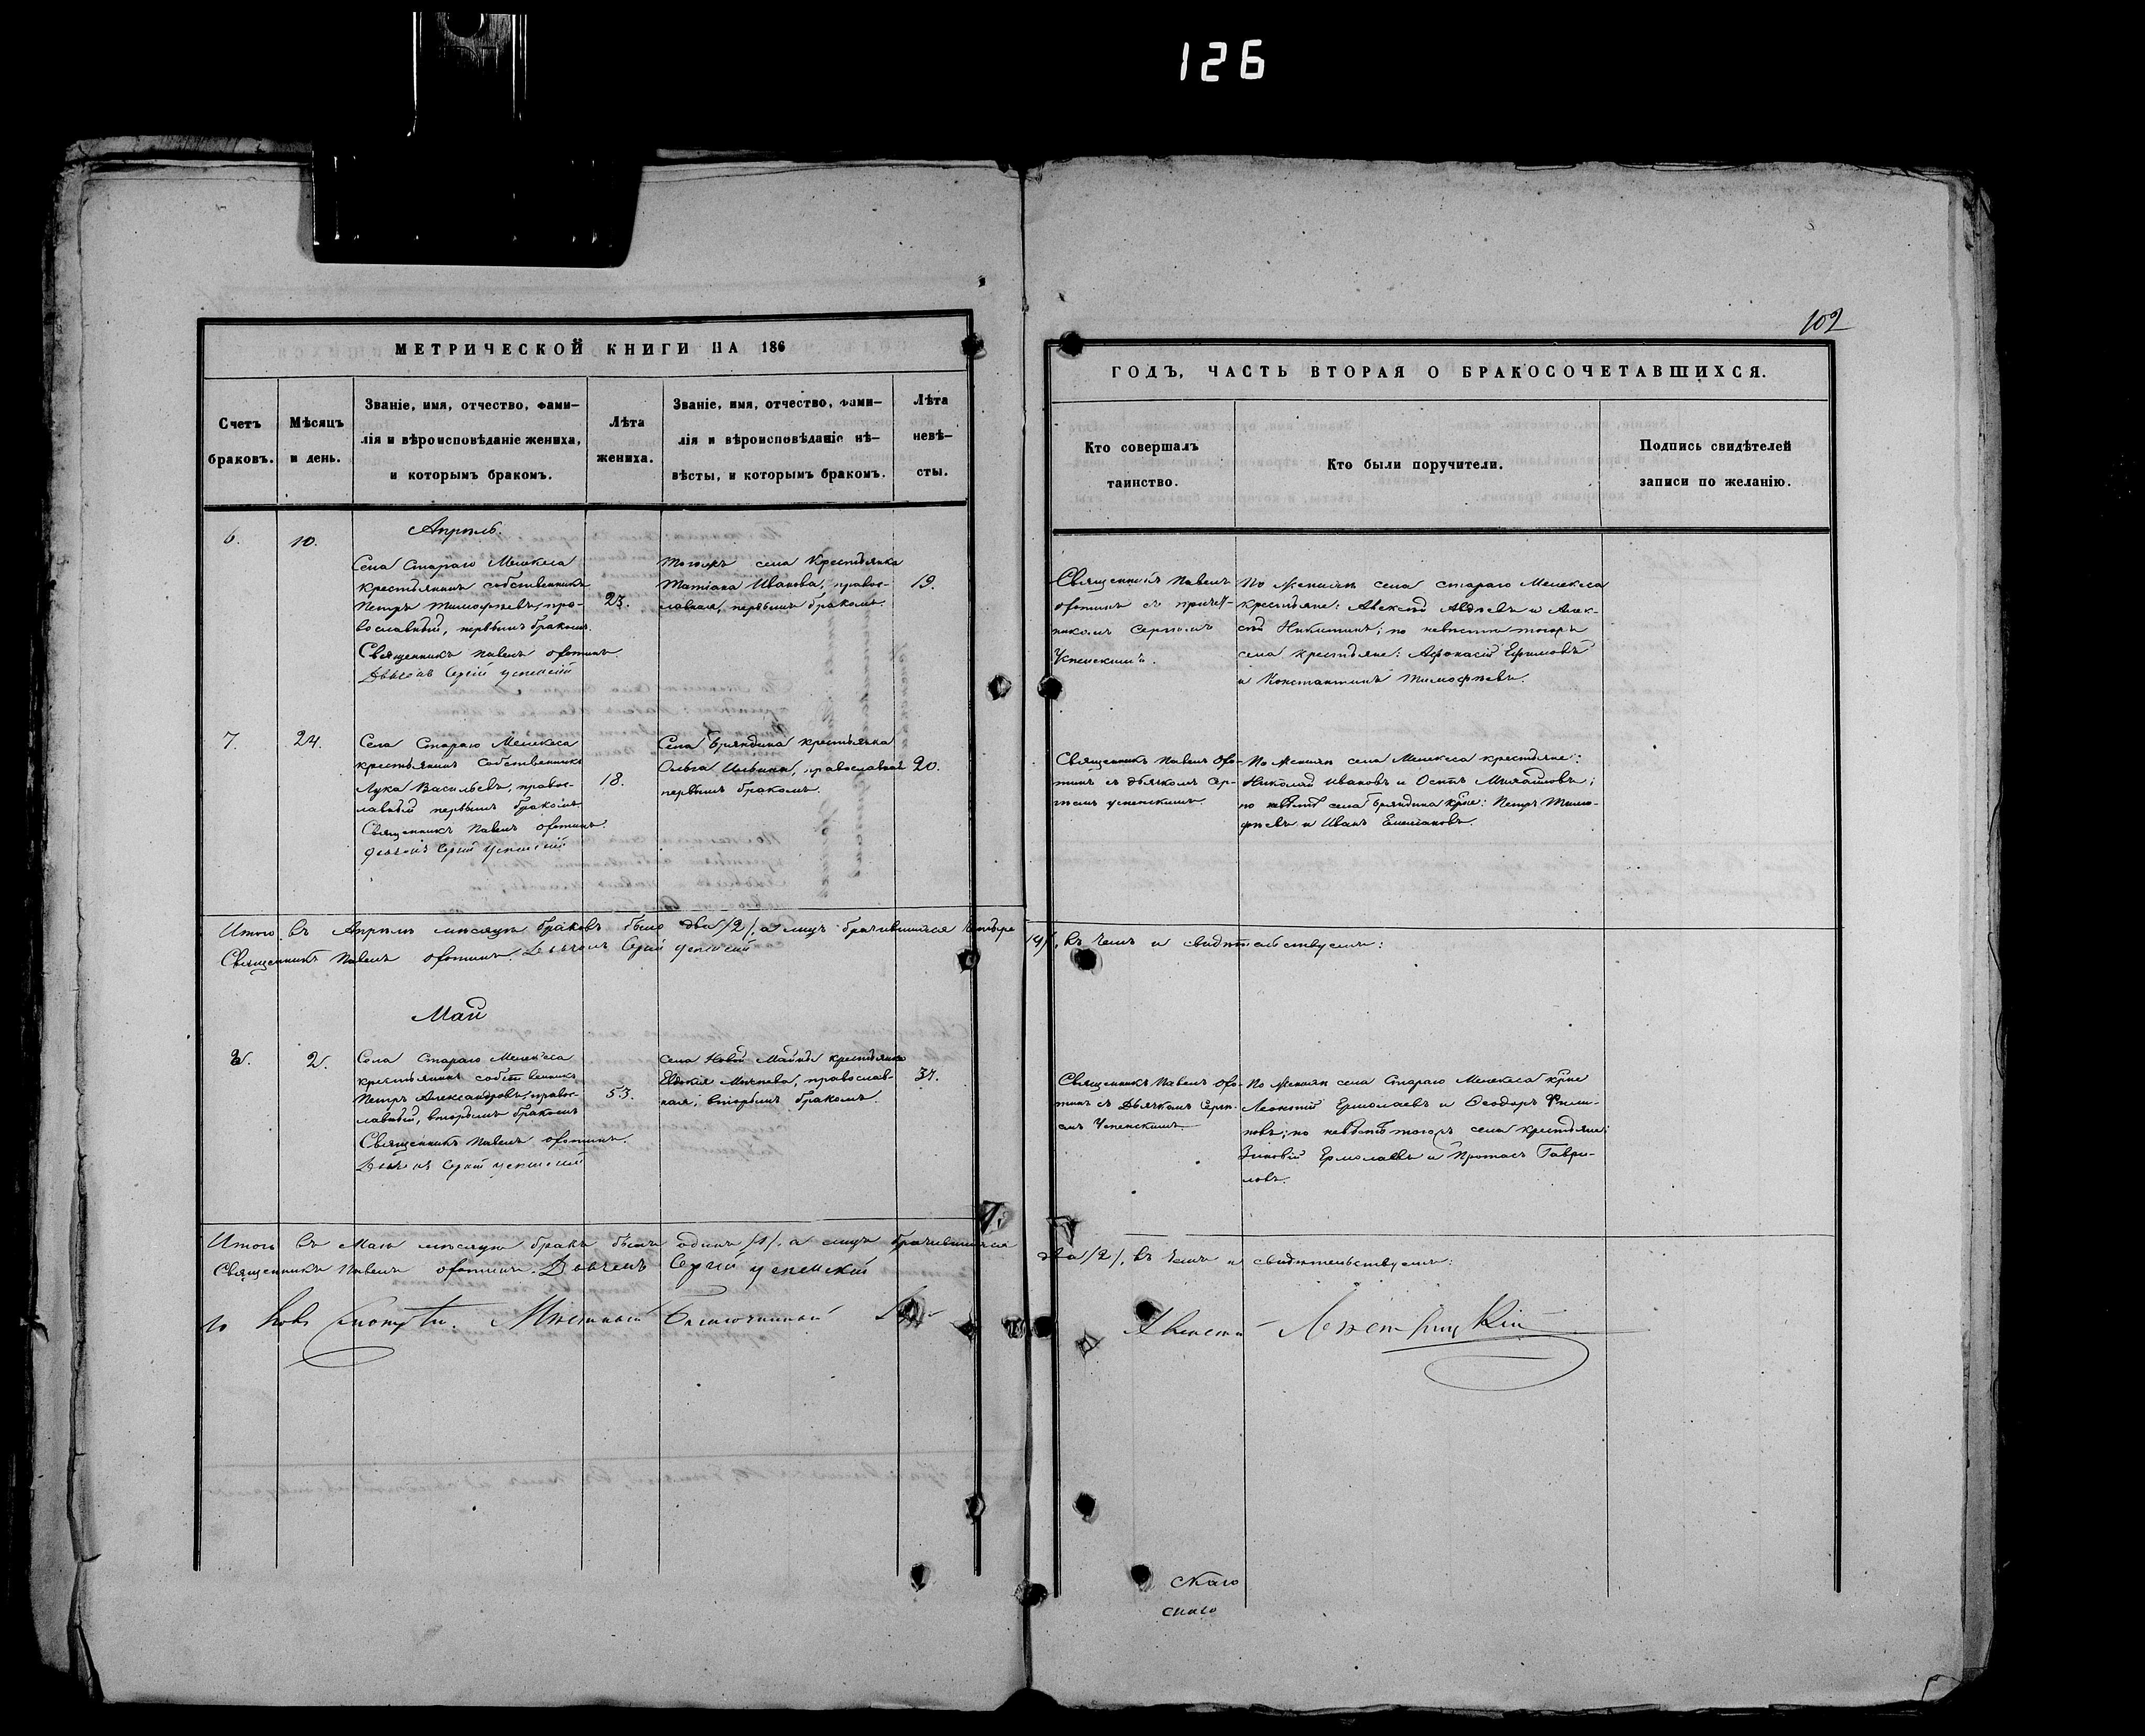 126
102
МЕТРИЧЕСКОЙ КНИГИ НА 186
Счетъ
браковъ.
Мѣсяцъ
и день.
Званіе, имя, отчество, фами-
лія и вѣроисповѣданіе жениха,
и которымъ бракомъ.
Лѣта
жениха.
Званіе, имя, отчество, фами-
лія и вѣроисповѣданіе нѣ-
вѣсты, и которымъ бракомъ.
Лѣта
невѣ-
сты.
ГОДЪ, ЧАСТЬ ВТОРАЯ О БРАКОСОЧЕТАВШИХСЯ.
Кто совершалъ
таинство.
Кто были поручители.
Подпись свидѣтелей
записи по желанію.
Апрѣль.
6.
10.
Села Стараго Мелекеса
крестьянинъ собственникъ
Петръ Тимофѣевъ, пра-
вославный, первымъ бракомъ.
Священникъ Павелъ
Дьячекъ Сергій Успенскій
23.
Тогожъ села крестьянка
Татіана Иванова, правос-
лавная, первымъ бракомъ.
19.
Священникъ Павелъ
съ причет-
никомъ Сергіемъ
Успенскимъ.
По женихѣ села стараго Мелекеса
крестьяне: Алексѣй Авдѣевъ и Алек-
сѣй Никитинъ; по невѣстѣ тогожъ
села крестьяне: Афанасій Ефимовъ
и Константинъ Тимофѣевъ.
7.
24.
Села Стараго Мелекеса
крестьянинъ собственникъ
Лука Васильевъ, правос-
лавный первымъ бракомъ
Священникъ Павелъ
дьячекъ Сергій Успенскій
18.
Села Бряндина крестьянка
Ольга Ильина, православная
первымъ бракомъ.
20.
Священникъ Павелъ
съ дьячкомъ Сер-
гіемъ Успенскимъ
По женихѣ села Мелекеса крестьяне:
Николай Ивановъ и Осипъ Михайловъ;
по невѣстѣ села Бряндина кр͠не: Петръ Тимо-
фѣевъ и Иванъ Емельяновъ.
Итого въ Апрѣлѣ мѣсяцѣ браковъ было два /2/, а лицъ брачившихся четыре /4/, въ чемъ и свидѣтельствуемъ:
Священникъ Павелъ Дьячекъ Сергій Успенскій
Май
8.
2.
Села Стараго Мелекеса
крестьянинъ собственникъ
Петръ Александровъ, правос-
лавный, вторымъ бракомъ
Священникъ Павелъ
Дьячекъ Сергій Успенскій
53.
Села Новой Майны крестьянка
православ-
ная, вторымъ бракомъ.
37.
Священникъ Павелъ
съ Дьячкомъ Сергі-
емъ Успенскимъ
По женихѣ села Стараго Мелекеса кр͠не
Леонтій Ермолаевъ и Ѳеодоръ Фили-
повъ; по невѣстѣ тогожъ села крестьяне:
Зиновій Ермолаевъ и Протасъ Гаври-
ловъ.
Итого въ Маѣ мѣсяцѣ бракъ былъ одинъ /1/, а лицъ брачившихся два /2/, въ чемъ и свидѣтельствуемъ:
Священникъ Павелъ Дьячекъ Сергій Успенскій
Мѣстный Благочинный
скаго
скаго